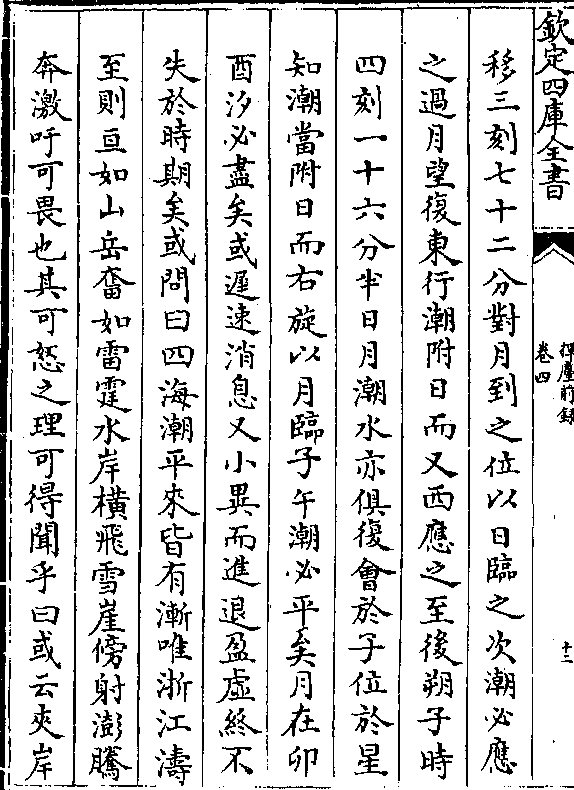 欽定四庫全書
揮麈前錄
卷四
十二
移三刻七十二分對月到之位以日臨之次潮必應
之過月望復東行潮附日而又西應之至後朔子時
四刻一十六分半日月潮水亦俱復會於子位於星
知潮當附日而右旋以月臨子午潮必平矣月在卯
酉汐必盡矣或遲速消息又小異而進退盈虛終不
失於時期矣或問曰四海潮平來皆有漸唯浙江濤
至則亘如山岳奮如雷霆水岸橫飛雪崖傍射澎騰
奔激吁可畏也其可怒之理可得聞乎曰或云夾岸